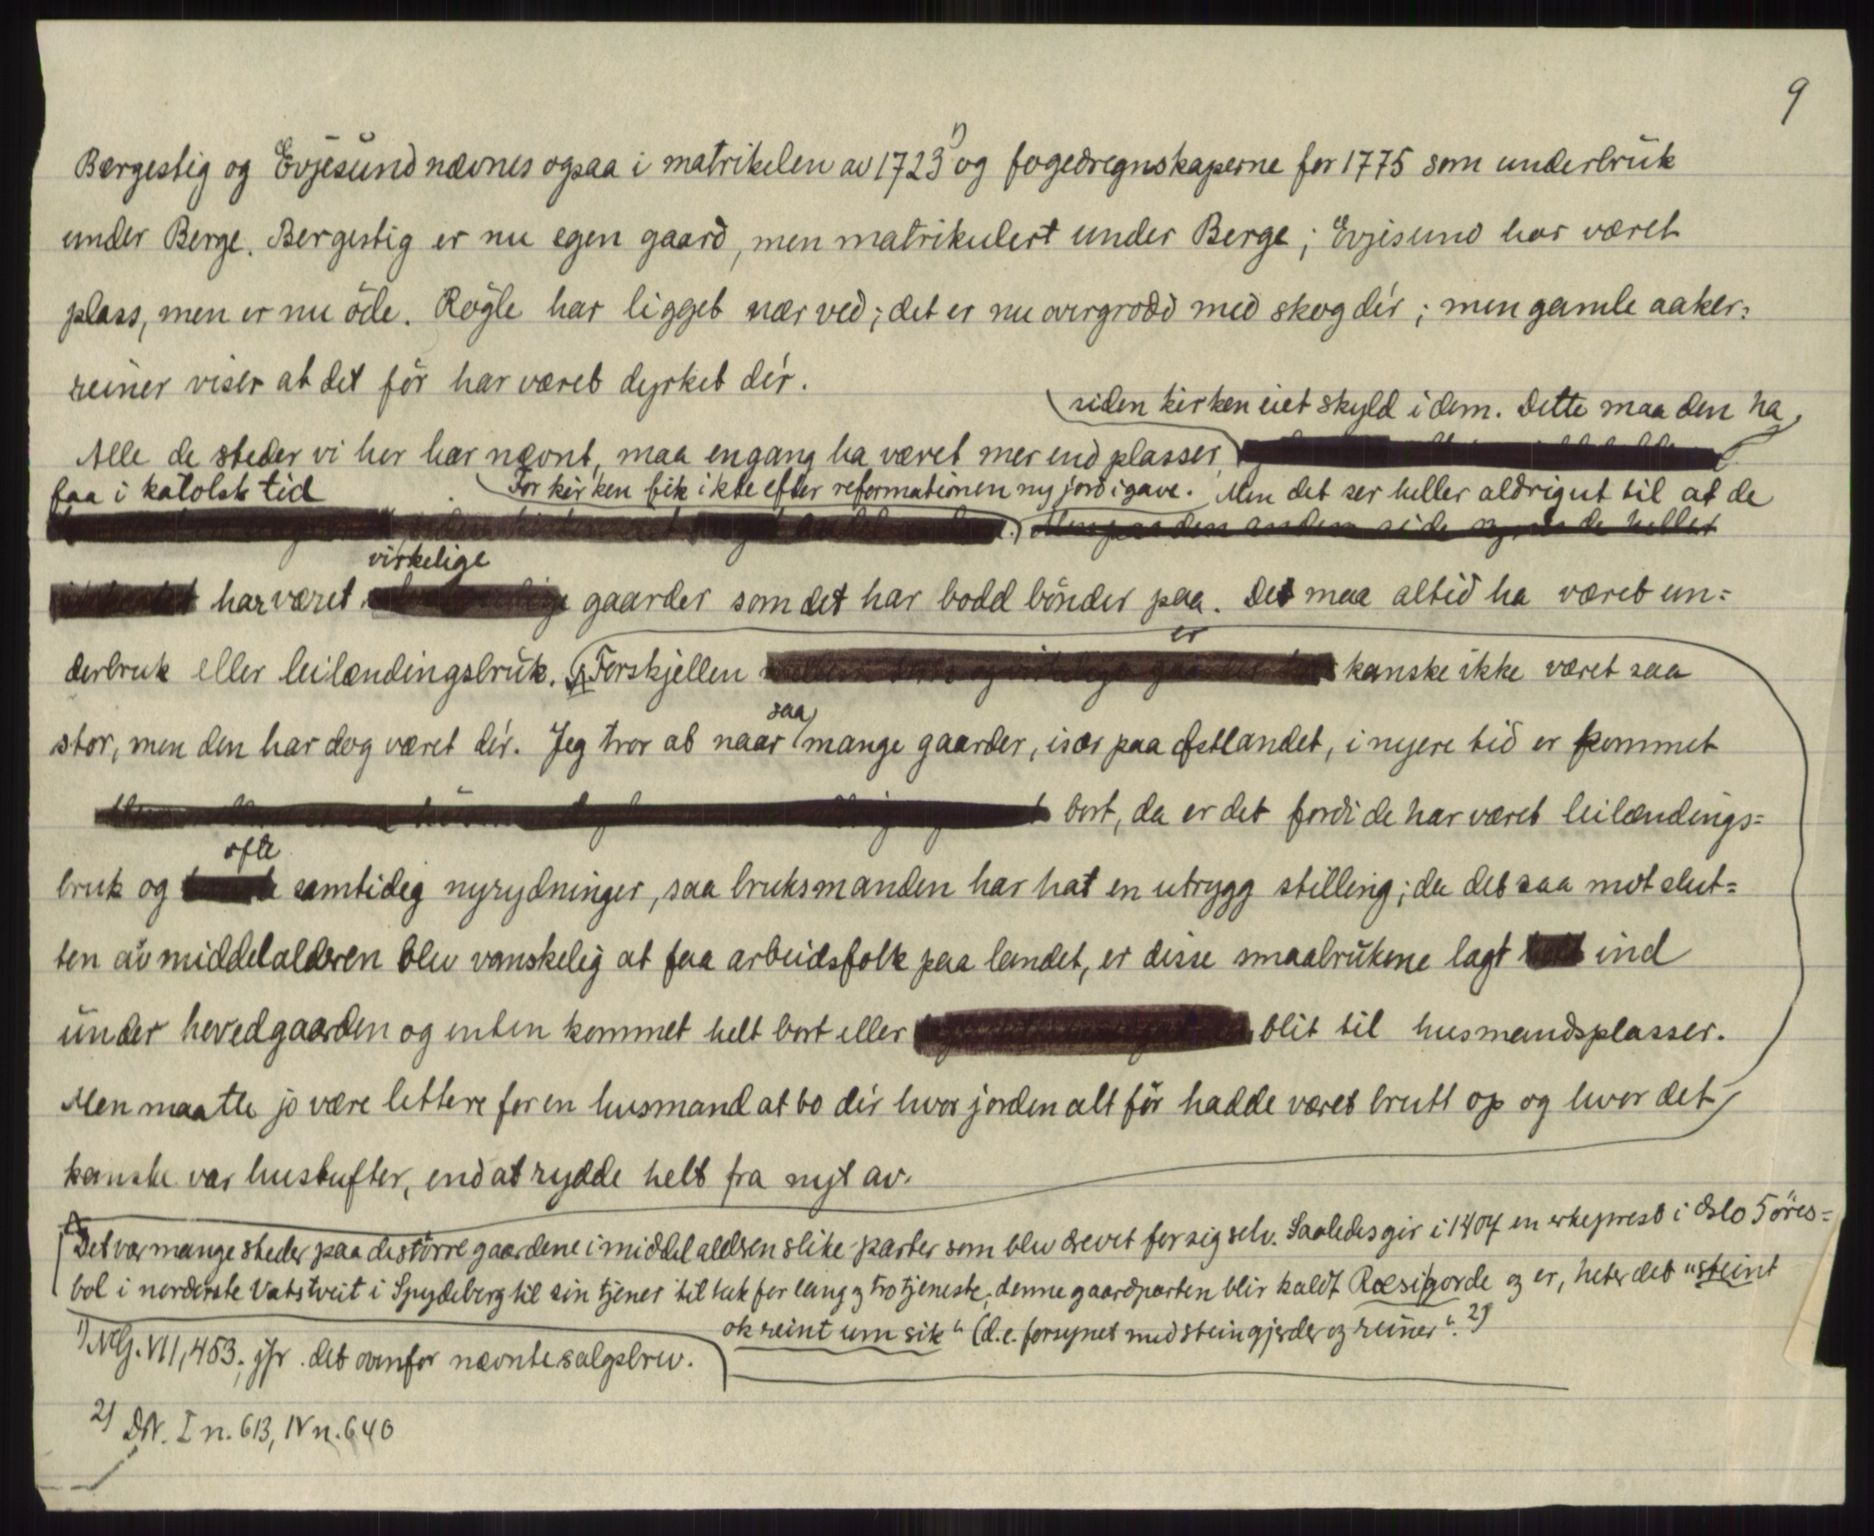 9
Bergestig og Evjesund nævnes ogsaa i matrikelen av 1723 1) og fogedregnskaperne for 1775 som underbruk
under Berge. Bergestig er nu egen gaard, men matrikulert under Berge; Evjesund har været
plass, men er nu öde. Rögle har ligget nær ved; det er nu overgrodd med skog dér; men gamle aaker=
reiner viser at det för har været dyrket dér.
siden kirken eiet skyld i dem. Dette maa den ha
Alle de steder vi her har nævnt, maa engang ha været mer end plasser,
faa i katolsk tid. For kirken fik ikke efter reformationen ny jord i gave. Men det ser heller aldri ut til at de
Men paa den anden side de heller
virkelige
har været gaarder som det har bodd bönder paa. Det maa altid ha været un=
er
derbruk eller leilændingsbruk. Forskjellen kanske ikke været saa
saa
stor, men den har dog været dér. Jeg tror at naar mange gaarder, især paa Østlandet, i nyere tid er kommet
bort, da er det fordi de har været leilændings=
ofte
bruk og samtidig nyrydninger, saa bruksmanden har hat en utrygg stilling; da det saa mot slut=
ten av middelalderen blev vanskelig at faa arbeidsfolk paa landet, er disse smaabrukene lagt ind
under hovedgaarden og enten kommet helt bort eller blit til husmandsplasser.
Men maatte jo være lettere for en husmand at bo dér hvor jorden alt för hadde været brutt op og hvor det
kanske var hustufter, end at rydde helt fra nyt av.
Det var mange steder paa de större gaardene i middelalderen slike parter som blev drevet for sig selv. Saaledes gir i 1404 en erkeprest i Oslo 5 öres=
bol i norderste Vatstveit i Spydeberg til sin tjener til takk for lang og tro tjeneste; denne gaardparten blir kaldt Ræsigorde og er, heter det "steint
ok reint um sik" (d.e. forsynet med steingjerder og reiner". 2)
1) NG. VII, 453; jfr. det ovenfor nævnte salgsbrev.
2) DN. I n. 613, IV n. 640